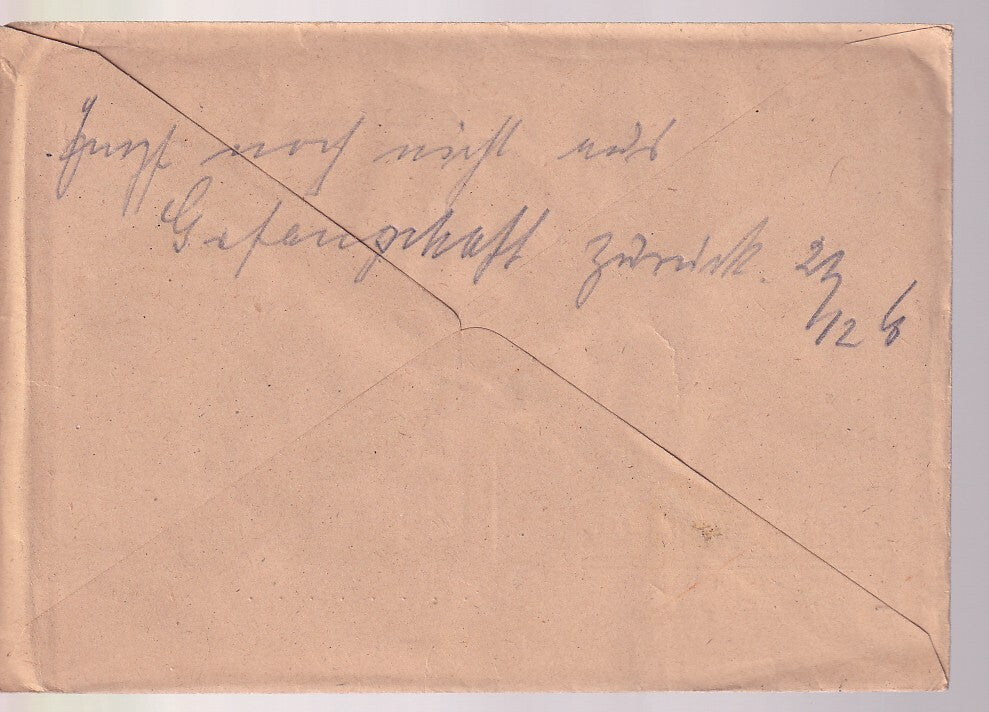 noch nicht aus
Gefangschaft zurück. 27/12